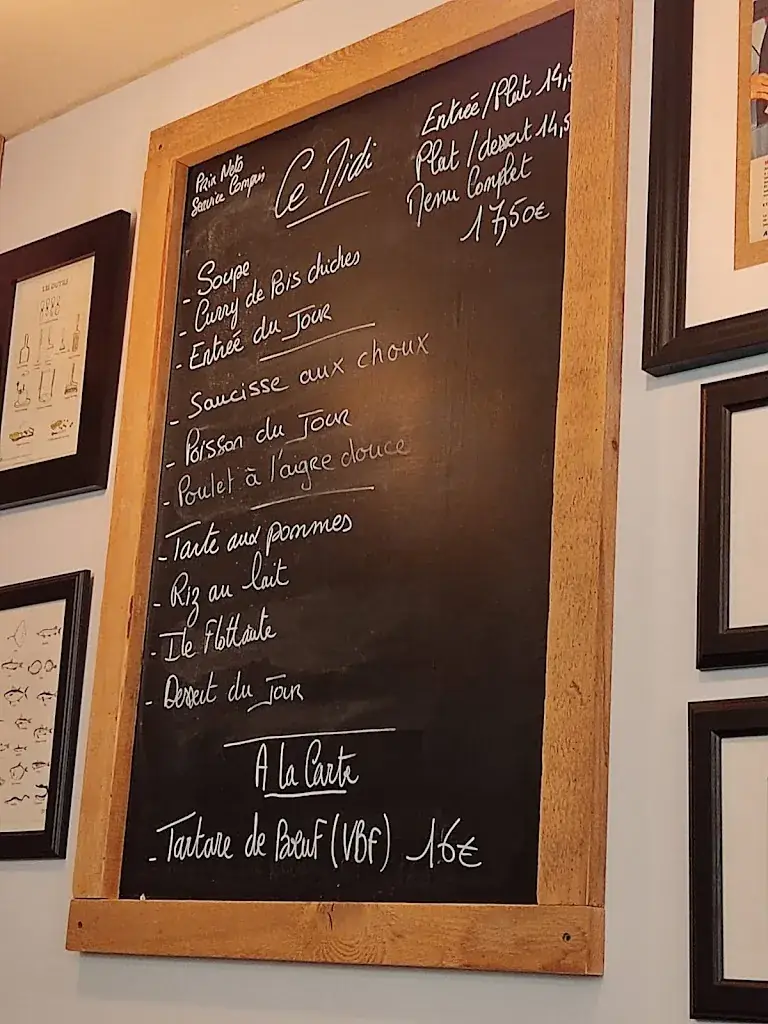 Prix Nets
Service Compris
Ce Midi
Entrée/Plat 14,5
Plat/dessert 14,5
Menu Complet
17,50€
- Soupe
- Curry de Pois chiches
- Entrée du Jour
- Saucisse aux choux
- Poisson du Jour
- Poulet à l'aigre douce
- Tarte aux pommes
- Riz au lait
- Ile Flottante
- Dessert du Jour
A la Carte
- Tartare de Bœuf (VBF) 16€